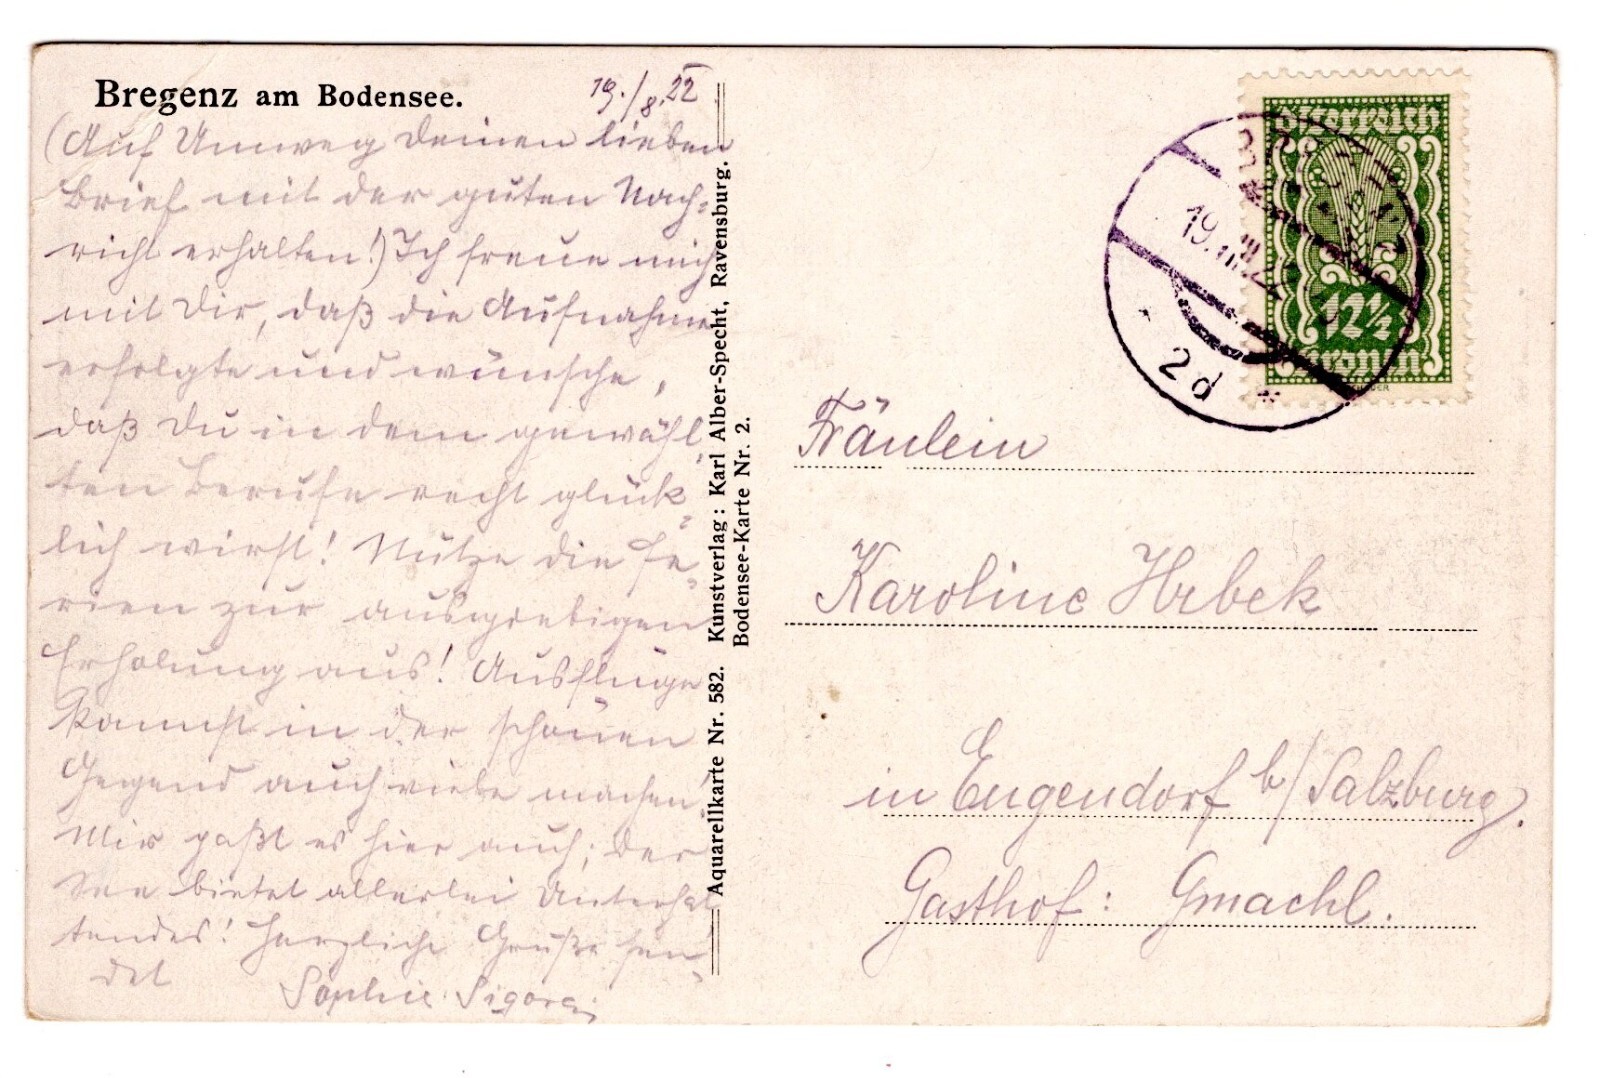 Bregenz am Bodensee.
19./8. 22
(Auf Umweg Deinen lieben
Brief mit der guten Nach-
richt erhalten!) Ich freue mich
mit Dir, daß die Aufnahme
erfolgte und wünsche,
daß Du in dem gewähl-
ten Berufe recht glück-
lich wirst! Nütze die Fe-
rien zur ausgiebigen
Erholung aus! Ausflüge
kannst in der schönen
Gegend auch viele machen!
Mir paßt es hier auch; der
See bietet allerlei Unterhal-
tendes! Herzliche Grüße sen-
det
Sophie
Aquarellkarte Nr. 582. Kunstverlag: Karl Alber-Specht, Ravensburg.
Bodensee-Karte Nr. 2.
Österreich
12½
Kronen
19.VIII.22
2d
Fräulein
Karoline Hrbek
in Eugendorf b/Salzburg.
Gasthof: Gmachl.